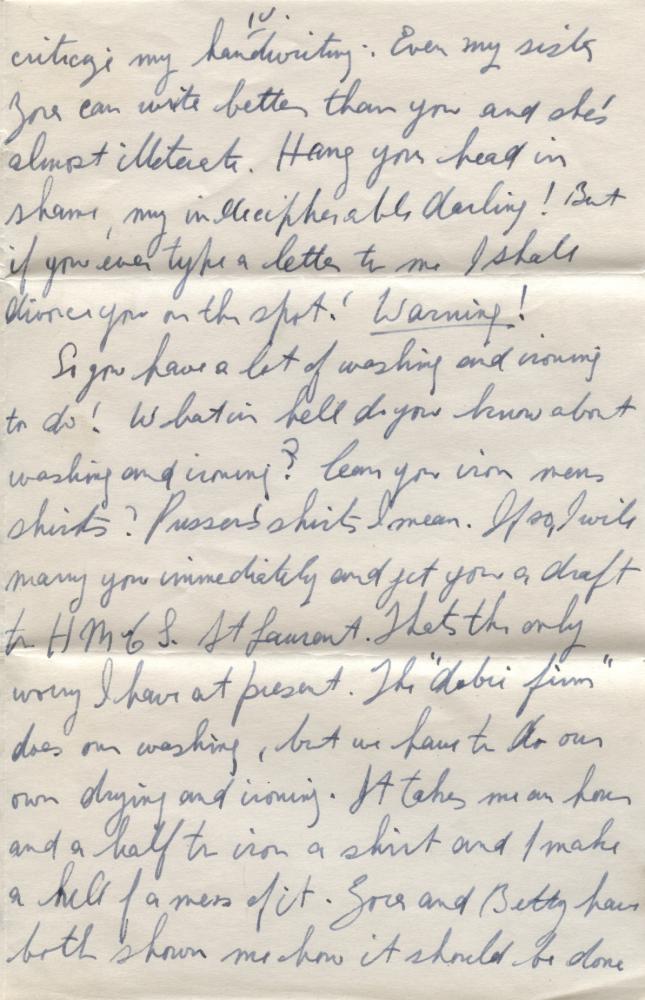 IV.
criticize my handwriting. Even my sister
Zora can write better than you and she's
almost illiterate. Hang your head in
shame, my indecipherable darling! But
if you ever type a letter to me I shall
divorce you on the spot! Warning!
So you have a lot of washing and ironing
to do! What in hell do you know about
washing and ironing? Can you iron mens
shirts? Pusser's shirts I mean. If so, I will
marry you immediately and get you a draft
to HMCS. St Laurent. Thats the only
worry I have at present. The "dobie firm"
does our washing, but we have to do our
own drying and ironing. It takes me an hour
and a half to iron a shirt and I make
a hell of a mess of it. Zora and Betty have
both shown me how it should be done